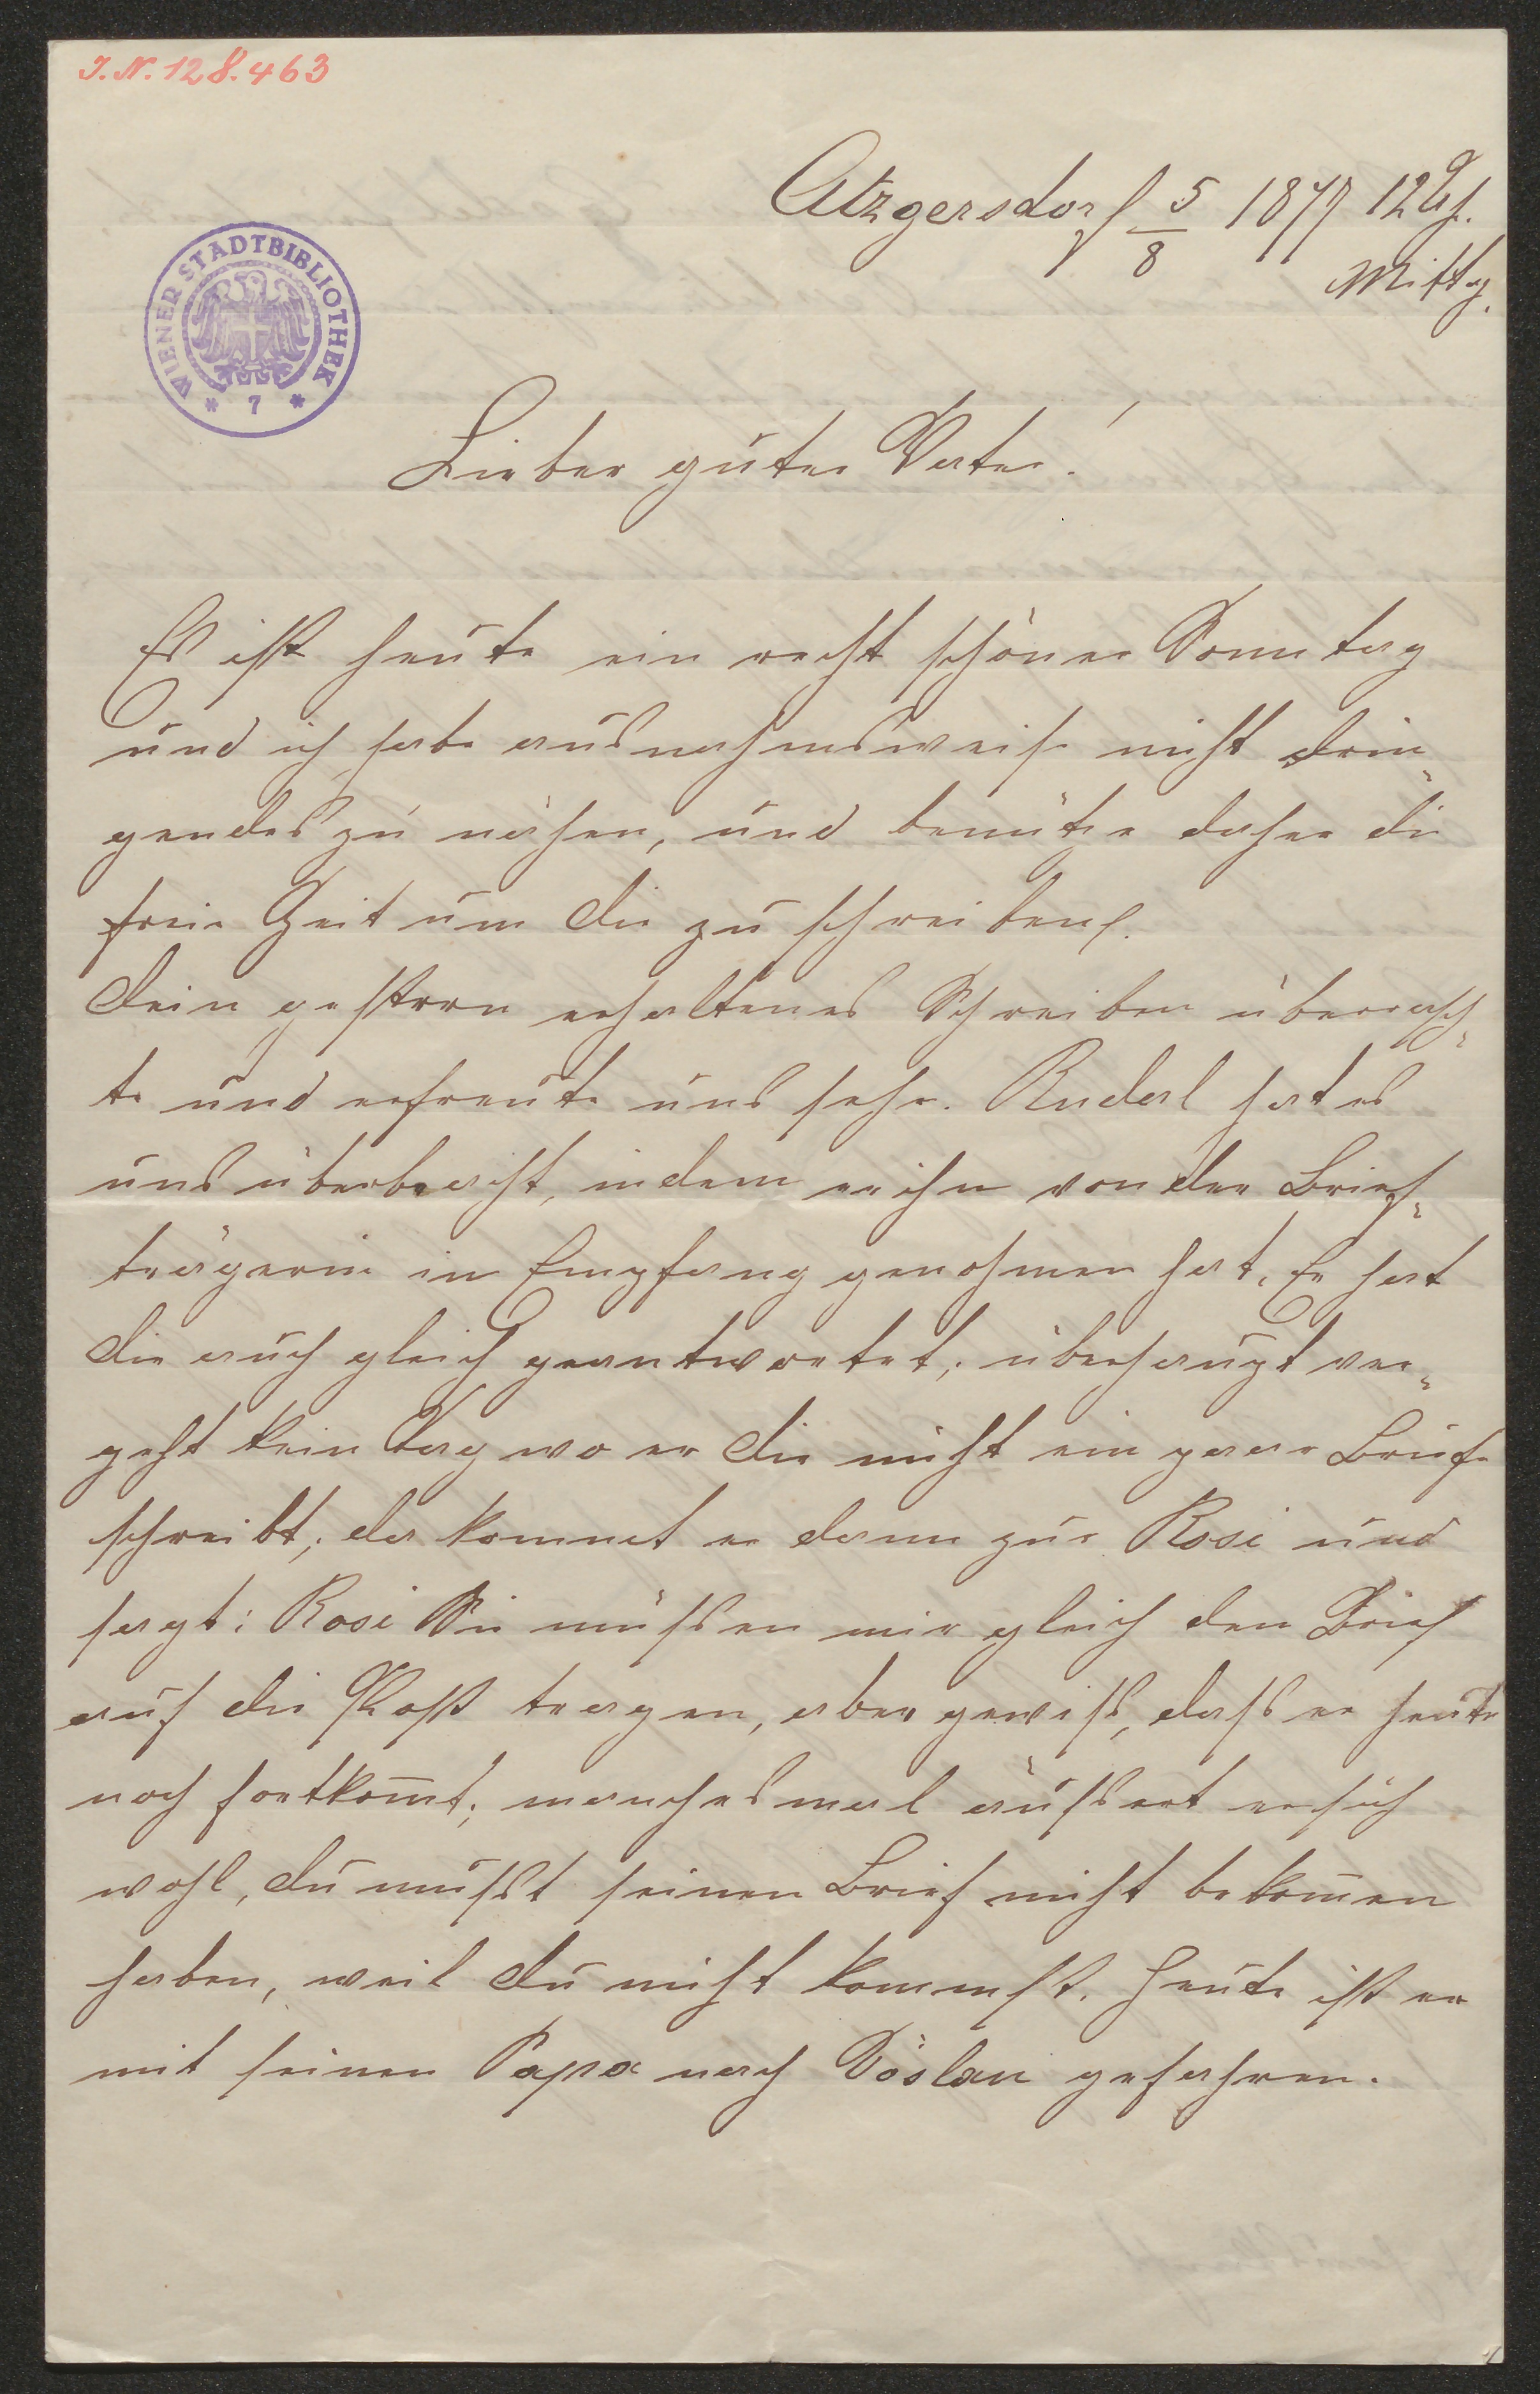 I. N. 128.463
Atzgersdorf 5/8 1877 12 Uh.
Mittg.
WIENER STADTBIBLIOTHEK
* 7 *
Lieber guter Vater!
Es ist heute ein recht schöner Sonntag
und ich habe ausnahmsweise nicht drin-
gendes zu nähen, und benütze daher die
freie Zeit um Dir zu schreiben.
Dein gestern erhaltenes Schreiben überrasch-
te und erfreute uns sehr. Ruderl hat es
uns überbracht, indem er ihn von der Brief-
trägerin in Empfang genohmen hat. Er hat
Dir auch gleich geantwortet; überhaupt ver-
geht kein Tag wo er Dir nicht ein paar Briefe
schreibt; da kommet er dann zur Rosi und
sagt: Rosi Sie müssen mir gleich den Brief
auf die Post tragen, aber gewiss, dass er heute
noch fortkomt; manchesmal äussert er sich
wohl, Du musst seinen Brief nicht bekomen
haben, weil Du nicht kommst. Heute ist er
mit seinen Papa nach Vöslau gefahren.